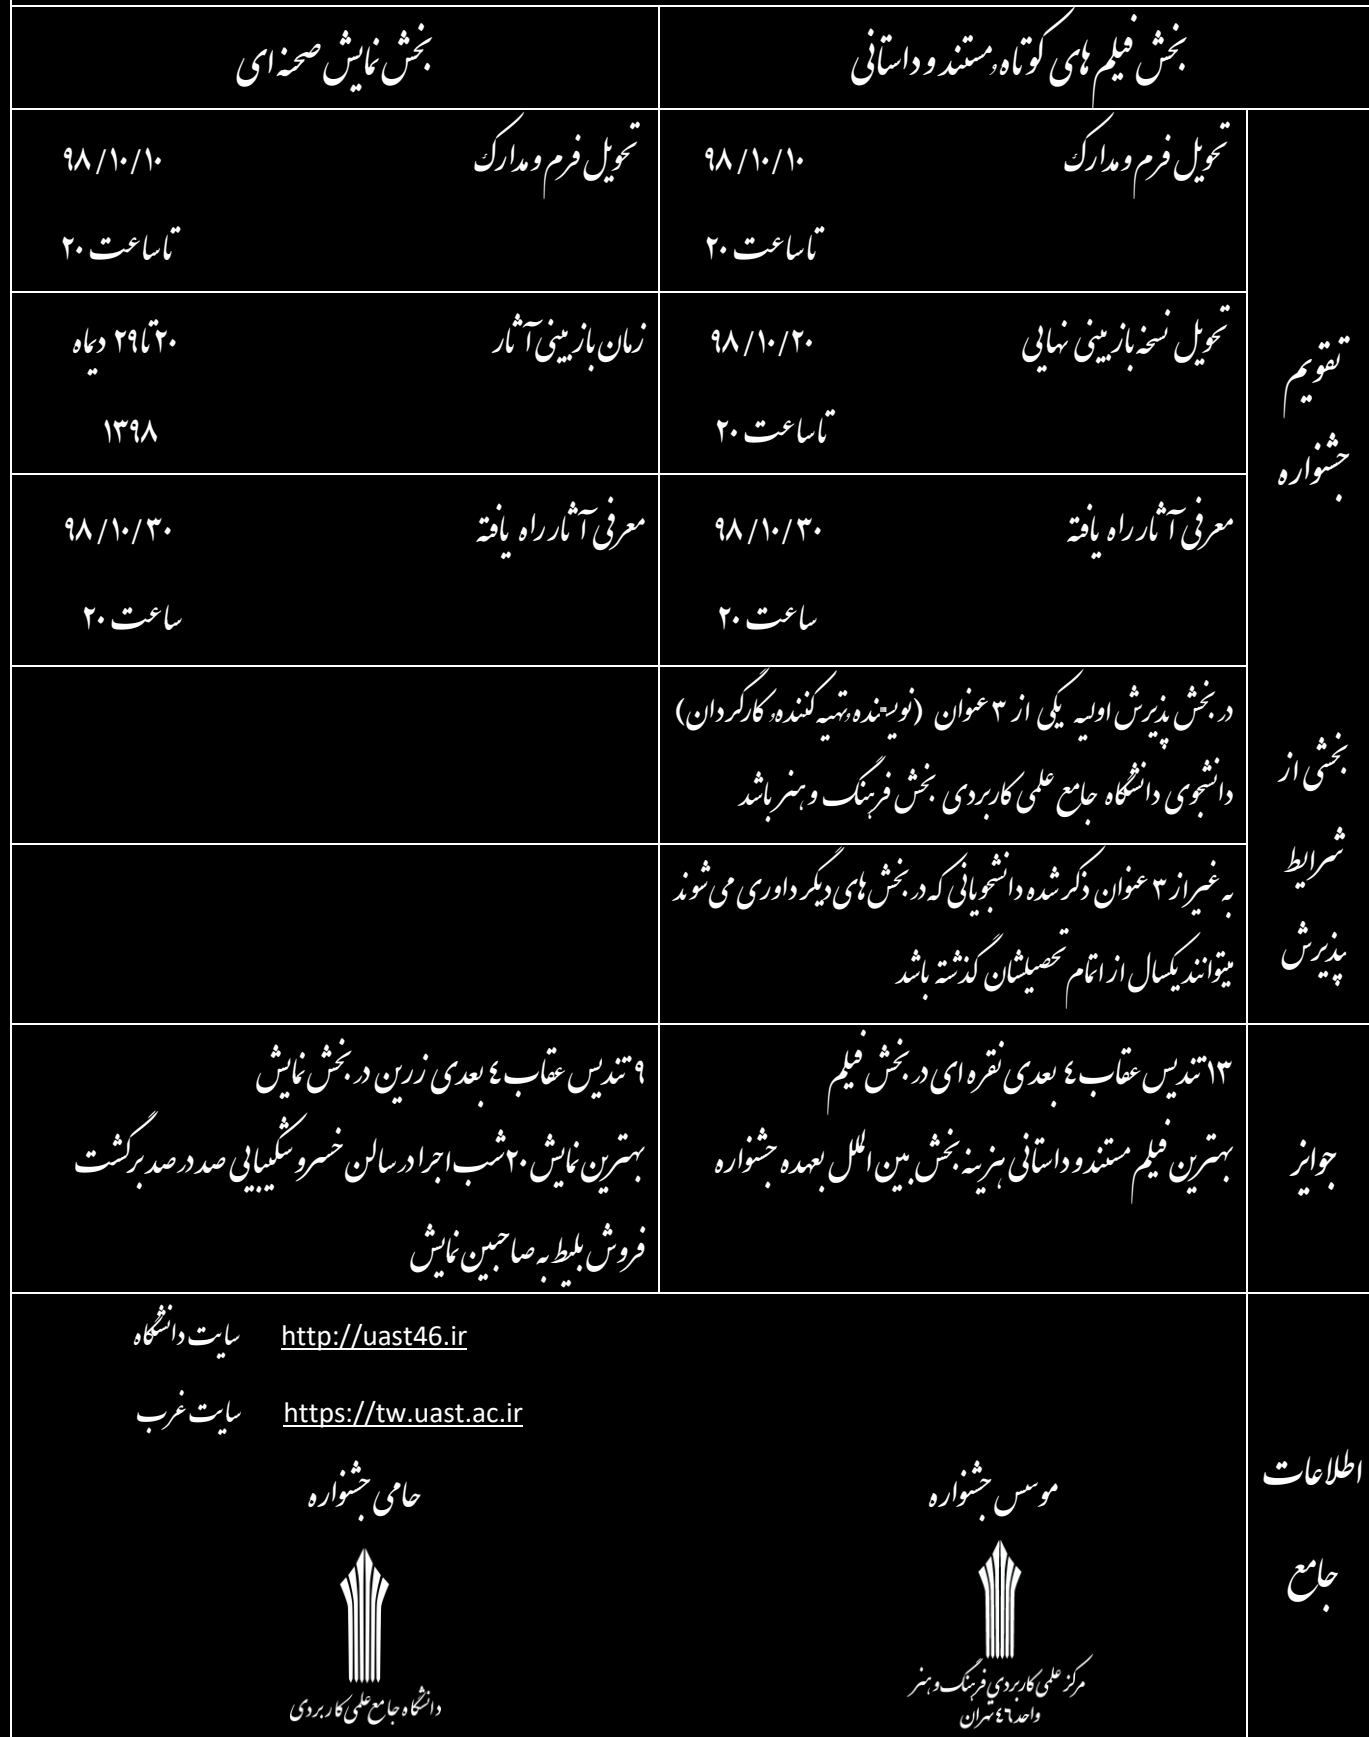 بخش فیلم های کوتاه،مستند و داستانی
بخش نمایش صحنه ای
تقویم
جشنواره
تحویل فرم و مدارک
۹۸/۱۰/۱۰
تا ساعت ۲۰
تحویل فرم و مدارک
۹۸/۱۰/۱۰
تا ساعت ۲۰
تحویل نسخه بازبینی نهایی
۹۸/۱۰/۲۰
تا ساعت ۲۰
زمان بازبینی آثار
۲۰ تا ۲۹ دیماه
۱۳۹۸
معرفی آثار راه یافته
۹۸/۱۰/۳۰
ساعت ۲۰
معرفی آثار راه یافته
۹۸/۱۰/۳۰
ساعت ۲۰
بخشی از
شرایط
پذیرش
در بخش پذیرش اولیه یکی از ۳ عنوان (نویسنده،تهیه کننده، کارگردان)
دانشجوی دانشگاه جامع علمی کاربردی بخش فرهنگ و هنر باشد
به غیر از ۳ عنوان ذکر شده دانشجویانی که در بخش های دیگر داوری می شوند
میتوانند یکسال از اتمام تحصیلشان گذشته باشد
جوایز
۱۳ تندیس عقاب ٤ بعدی نقره ای در بخش فیلم
بهترین فیلم مستند و داستانی هزینه بخش بین الملل بعهده جشنواره
۹ تندیس عقاب ٤ بعدی زرین در بخش نمایش
بهترین نمایش ۲۰ شب اجرا در سالن خسرو شکیبایی صد در صد برگشت
فروش بلیط به صاحبین نمایش
اطلاعات
جامع
سایت دانشگاه http://uast46.ir
سایت غرب https://tw.uast.ac.ir
موسس جشنواره
مرکز علمی کاربردی فرهنگ و هنر
واحد ٤٦ تهران
حامی جشنواره
دانشگاه جامع علمی کاربردی